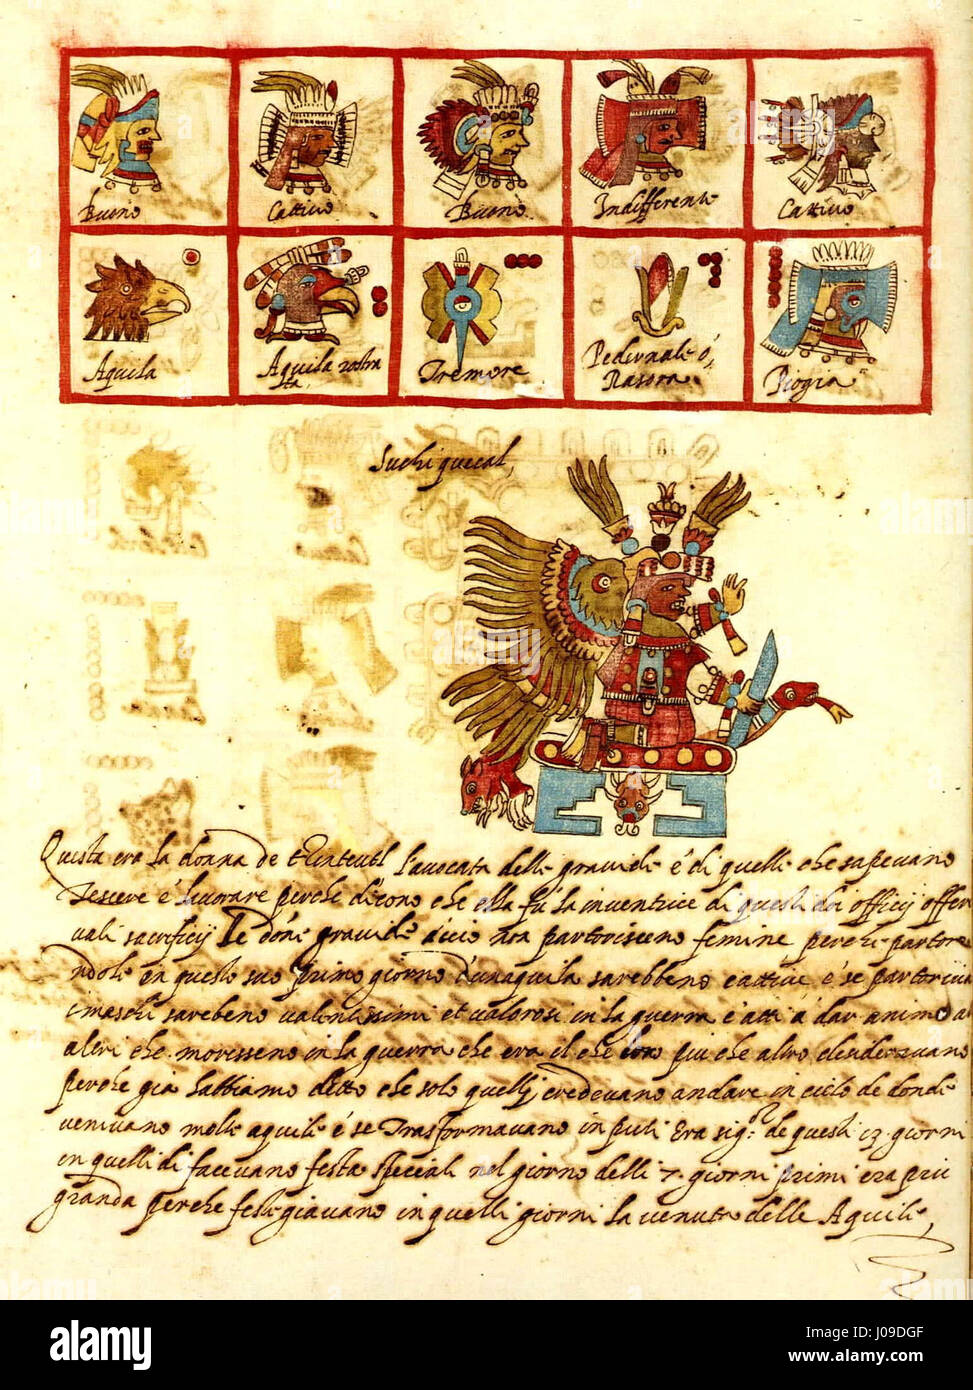 Buono Cattivo Buono Indifferente Cattivo
Aquila Aquila Tremore Pedernale ó Piogia
Rasora
Suchiquecal,
Questa era la donna de l'avocata delle gravide é di quelle che sapevano
Tescere é lavorare perche dicono che ella fú la inventrice di questi doi officij
vali sacrificij le donne gravide acio non partorisceno femine perche
in questo suo primo giorno d'una quila sarebbeno cattive é se
maschi sarebeno valentissimi et valorosi in la guerra é atti á dar animo
altri che morisseno in la guerra che era il che piu che altro
perche gia habbiamo detto che solo quelli credevano andare in cielo de donde
venivano molte aquile é se Trasformavano in puti Era sig.re de questi 13. giorni
in quelli di facevano festa speciali nel giorno delli 7. giorni primi era piu
granda perche festegiavano in quelli giorni la venuta delle Aquile,
alamy
Image ID: J09DGF
www.alamy.com